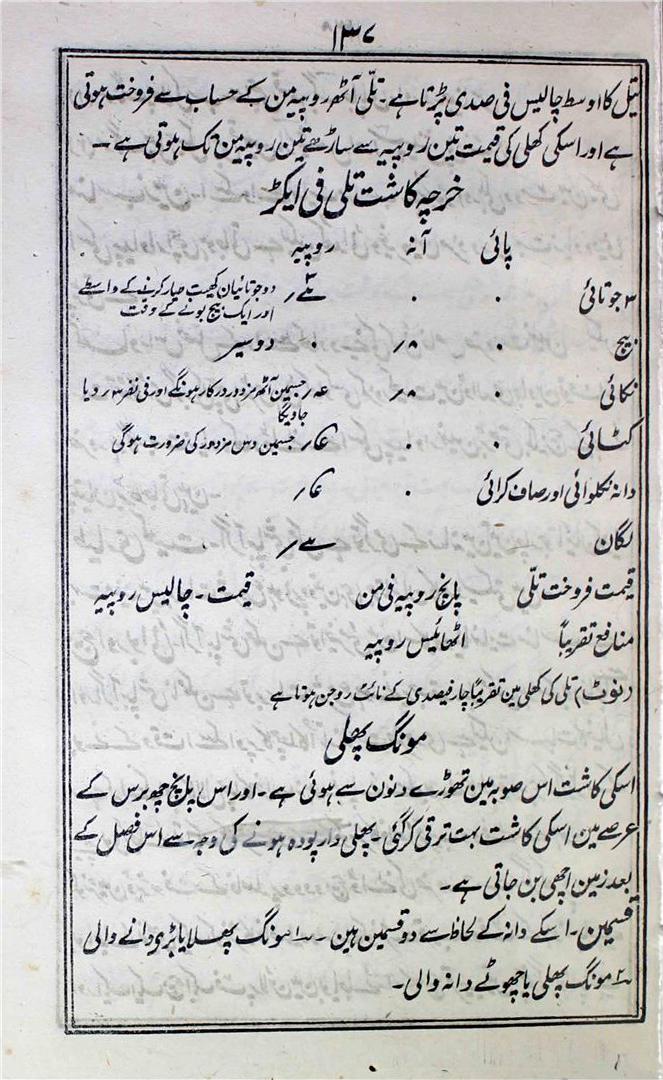 ۱۳۷
تیل کا اوسط چالیس فی صدی پڑتا ہے۔ تلّی آٹھ روپیہ من کے حساب سے فروخت ہوتی
ہے اور اسکی کھلی کی قیمت تین روپیہ سے ساڑھے تین روپیہ من تک ہوتی ہے۔
خرچہ کاشت تلی فی ایکڑ
پائی آنہ روپیہ
۳ جوتائی ۰ ۰ دو جوتائیان کھیت طیار کرنیکے واسطے
اور ایک بیج بونے کے وقت
بیج ۰ ۸؍ ۰ دو سیر
نکائی ۰ ۸؍ جسمین آٹھ مزدور درکار ہونگے اور فی نفر ۳؍ دیا
جاویگا
کٹائی ۰ ۰ جسمین دس مزدور کی ضرورت ہوگی
دانہ نکلوائی اور صاف کرائی ۰
لگان
قیمت فروخت تلّی پانچ روپیہ فی من قیمت۔ چالیس روپیہ
منافع تقریباً اٹھائیس روپیہ
(نوٹ) تلی کی کھلی مین تقریباً چار فیصدی کے نائٹروجن ہوتا ہے
مونگ پھلی
اسکی کاشت اس صوبہ مین تھوڑے دنون سے ہوئی ہے۔ اور اس پانچ چھ برس کے
عرصے مین اسکی کاشت بہت ترقی کر گئی۔ پھلی دار پودہ ہونے کی وجہ سے اس فصل کے
بعد زمین اچھی بن جاتی ہے۔
قسمین۔ اسکے دانہ کے لحاظ سے دو قسمین ہین۔ ۱؎ مونگ پھلا یا بڑی دانے والی
۲؎ مونگ پھلی یا چھوٹے دانہ والی۔